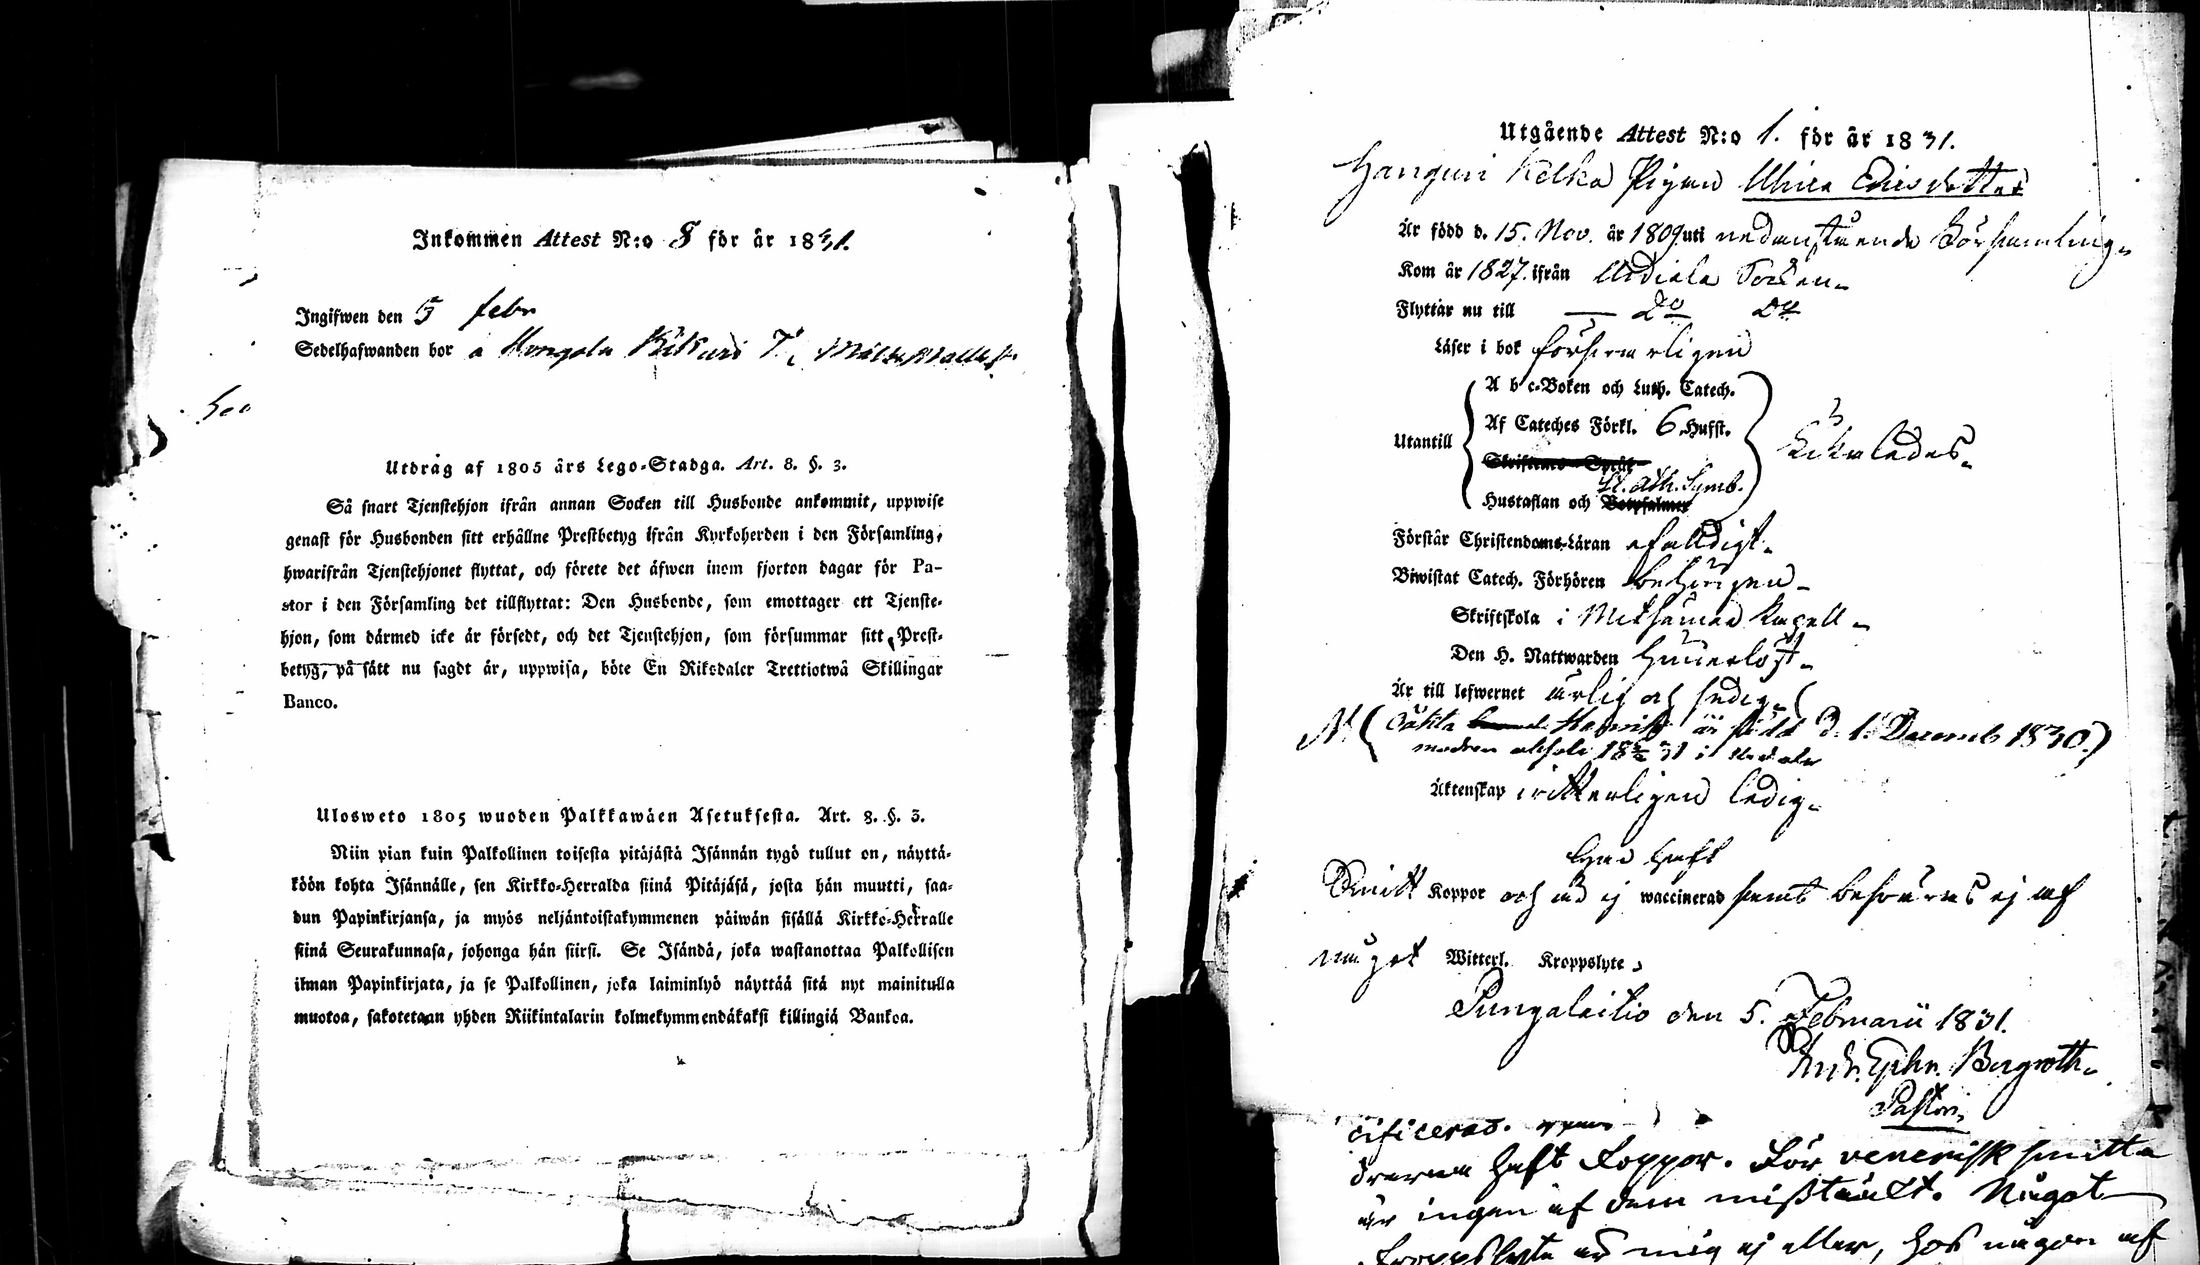 Inkommen Attest N:o 8 för år 1831.
Ingifwen den 5 febr
Sedelhafwanden bor å Kongola
Utdrag af 1805 års Lego-Stadga. Art. 8. §. 3.
Så snart Tjenstehjon ifrån annan Socken till Husbonde ankommit, uppwise
genast för Husbonden sitt erhållne Prestbetyg ifrån Kyrkoherden i den Församling,
hwarifrån Tjenstehjonet flyttat, och förete det äfwen inom fjorton dagar för Pa-
stor i den Församling det tillflyttat: Den Husbonde, som emottager ett Tjenste-
hjon, som därmed icke är försedt, och det Tjenstehjon, som försummar sitt Prest-
betyg, på sätt nu sagdt är, uppwisa, böte En Riksdaler Trettiotwå Skillingar
Banco.
Ulosweto 1805 wuoden Palkkawäen Asetuksesta. Art. 8. §. 3.
Niin pian kuin Palkollinen toisesta pitäjästä Isännän tygö tullut on, näyttä-
köön kohta Isännälle, sen Kirkko-Herralda siinä Pitäjäsä, josta hän muutti, saa-
dun Papinkirjansa, ja myös neljäntoistakymmenen päiwän sisällä Kirkko-Herralle
siinä Seurakunnasa, johonga hän siirsi. Se Isändä, joka wastanottaa Palkollisen
ilman Papinkirjata, ja se Palkollinen, joka laiminlyö näyttää sitä nyt mainitulla
muotoa, sakotetaan yhden Riikintalarin kolmekymmendäkaksi killingiä Bankoa.
Utgående Attest N:o 1. för år 1831.
Pigan Ulrica Ericsdotter
Är född d. 15. Nov. år 1809 uti nedanstående Församling.
Kom år 1827. ifrån Urdiala Socken.
Flyttar nu till — Do Do
Läser i bok försvarligen
Utantill
A b c-Boken och Luth. Catech.
Af Cateches Förkl. 6 Hufst.
St. Ath. Symb.
Hustaflan och
Likaledes.
Förstår Christendoms-Läran
Biwistat Catech. Förhören behörigen
Skriftskola i Kapell
Den H. Nattwarden
Är till lefwernet ärlig och sedig.
är född d. 1. Decemb 1830.)
Äktenskap ledig.
haft
Koppor och är ej waccinerad samt besväras ej af
något Witterl. Kroppslyte,
Pungalaitio den 5. Februarii 1831.
And. Ephr. Bergroth.
Pastor.
haft koppor. För venerisk smitta
är ingen af dem misstänkt. Något
kroppslyte är mig ej eller, hos någon af